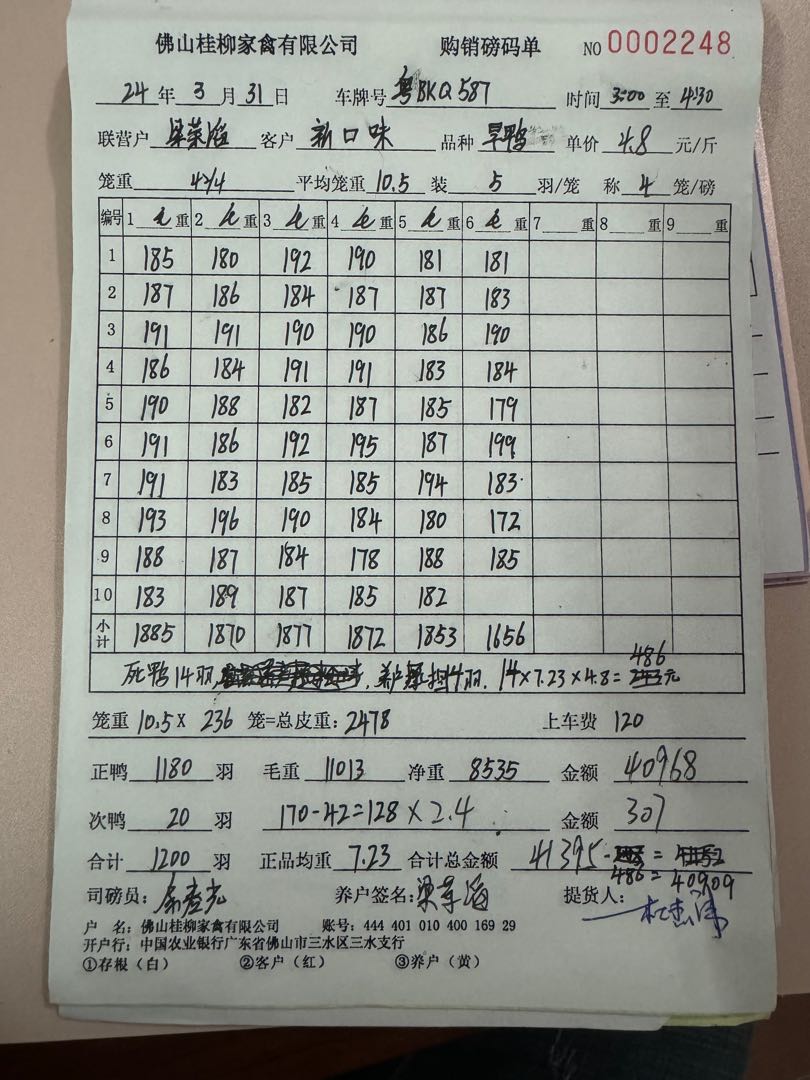 佛山桂柳家禽有限公司 购销磅码单 NO 0002248
24 年 3 月 31 日 车牌号 粤BKQ587 时间 3:00 至 4:30
联营户 梁菜海 客户 新口味 品种 旱鸭 单价 4.8 元/斤
笼重 42/4 平均笼重 10.5 装 5 羽/笼 称 4 笼/磅
编号 1 毛 重 2 毛 重 3 毛 重 4 毛 重 5 毛 重 6 毛 重 7 重 8 重 9 重
1 185 180 192 190 181 181
2 187 186 184 187 187 183
3 191 191 190 190 186 190
4 186 184 191 191 183 184
5 190 188 182 187 185 179
6 191 186 192 195 187 199
7 191 183 185 185 194 183
8 193 196 190 184 180 172
9 188 187 184 178 188 185
10 183 189 187 185 182
小计 1885 1870 1877 1872 1853 1656
486
死鸭14羽, 养户 担14羽. 14×7.23×4.8= 元
笼重 10.5 × 236 笼=总皮重: 2478 上车费 120
正鸭 1180 羽 毛重 11013 净重 8535 金额 40968
次鸭 20 羽 170-42=128×2.4 金额 307
合计 1200 羽 正品均重 7.23 合计总金额 41395 -
486 = 40909
司磅员: 养户签名: 梁 海 提货人:
户 名: 佛山桂柳家禽有限公司 账号: 444 401 010 400 169 29
开户行: 中国农业银行广东省佛山市三水区三水支行
①存根(白) ②客户(红) ③养户(黄)